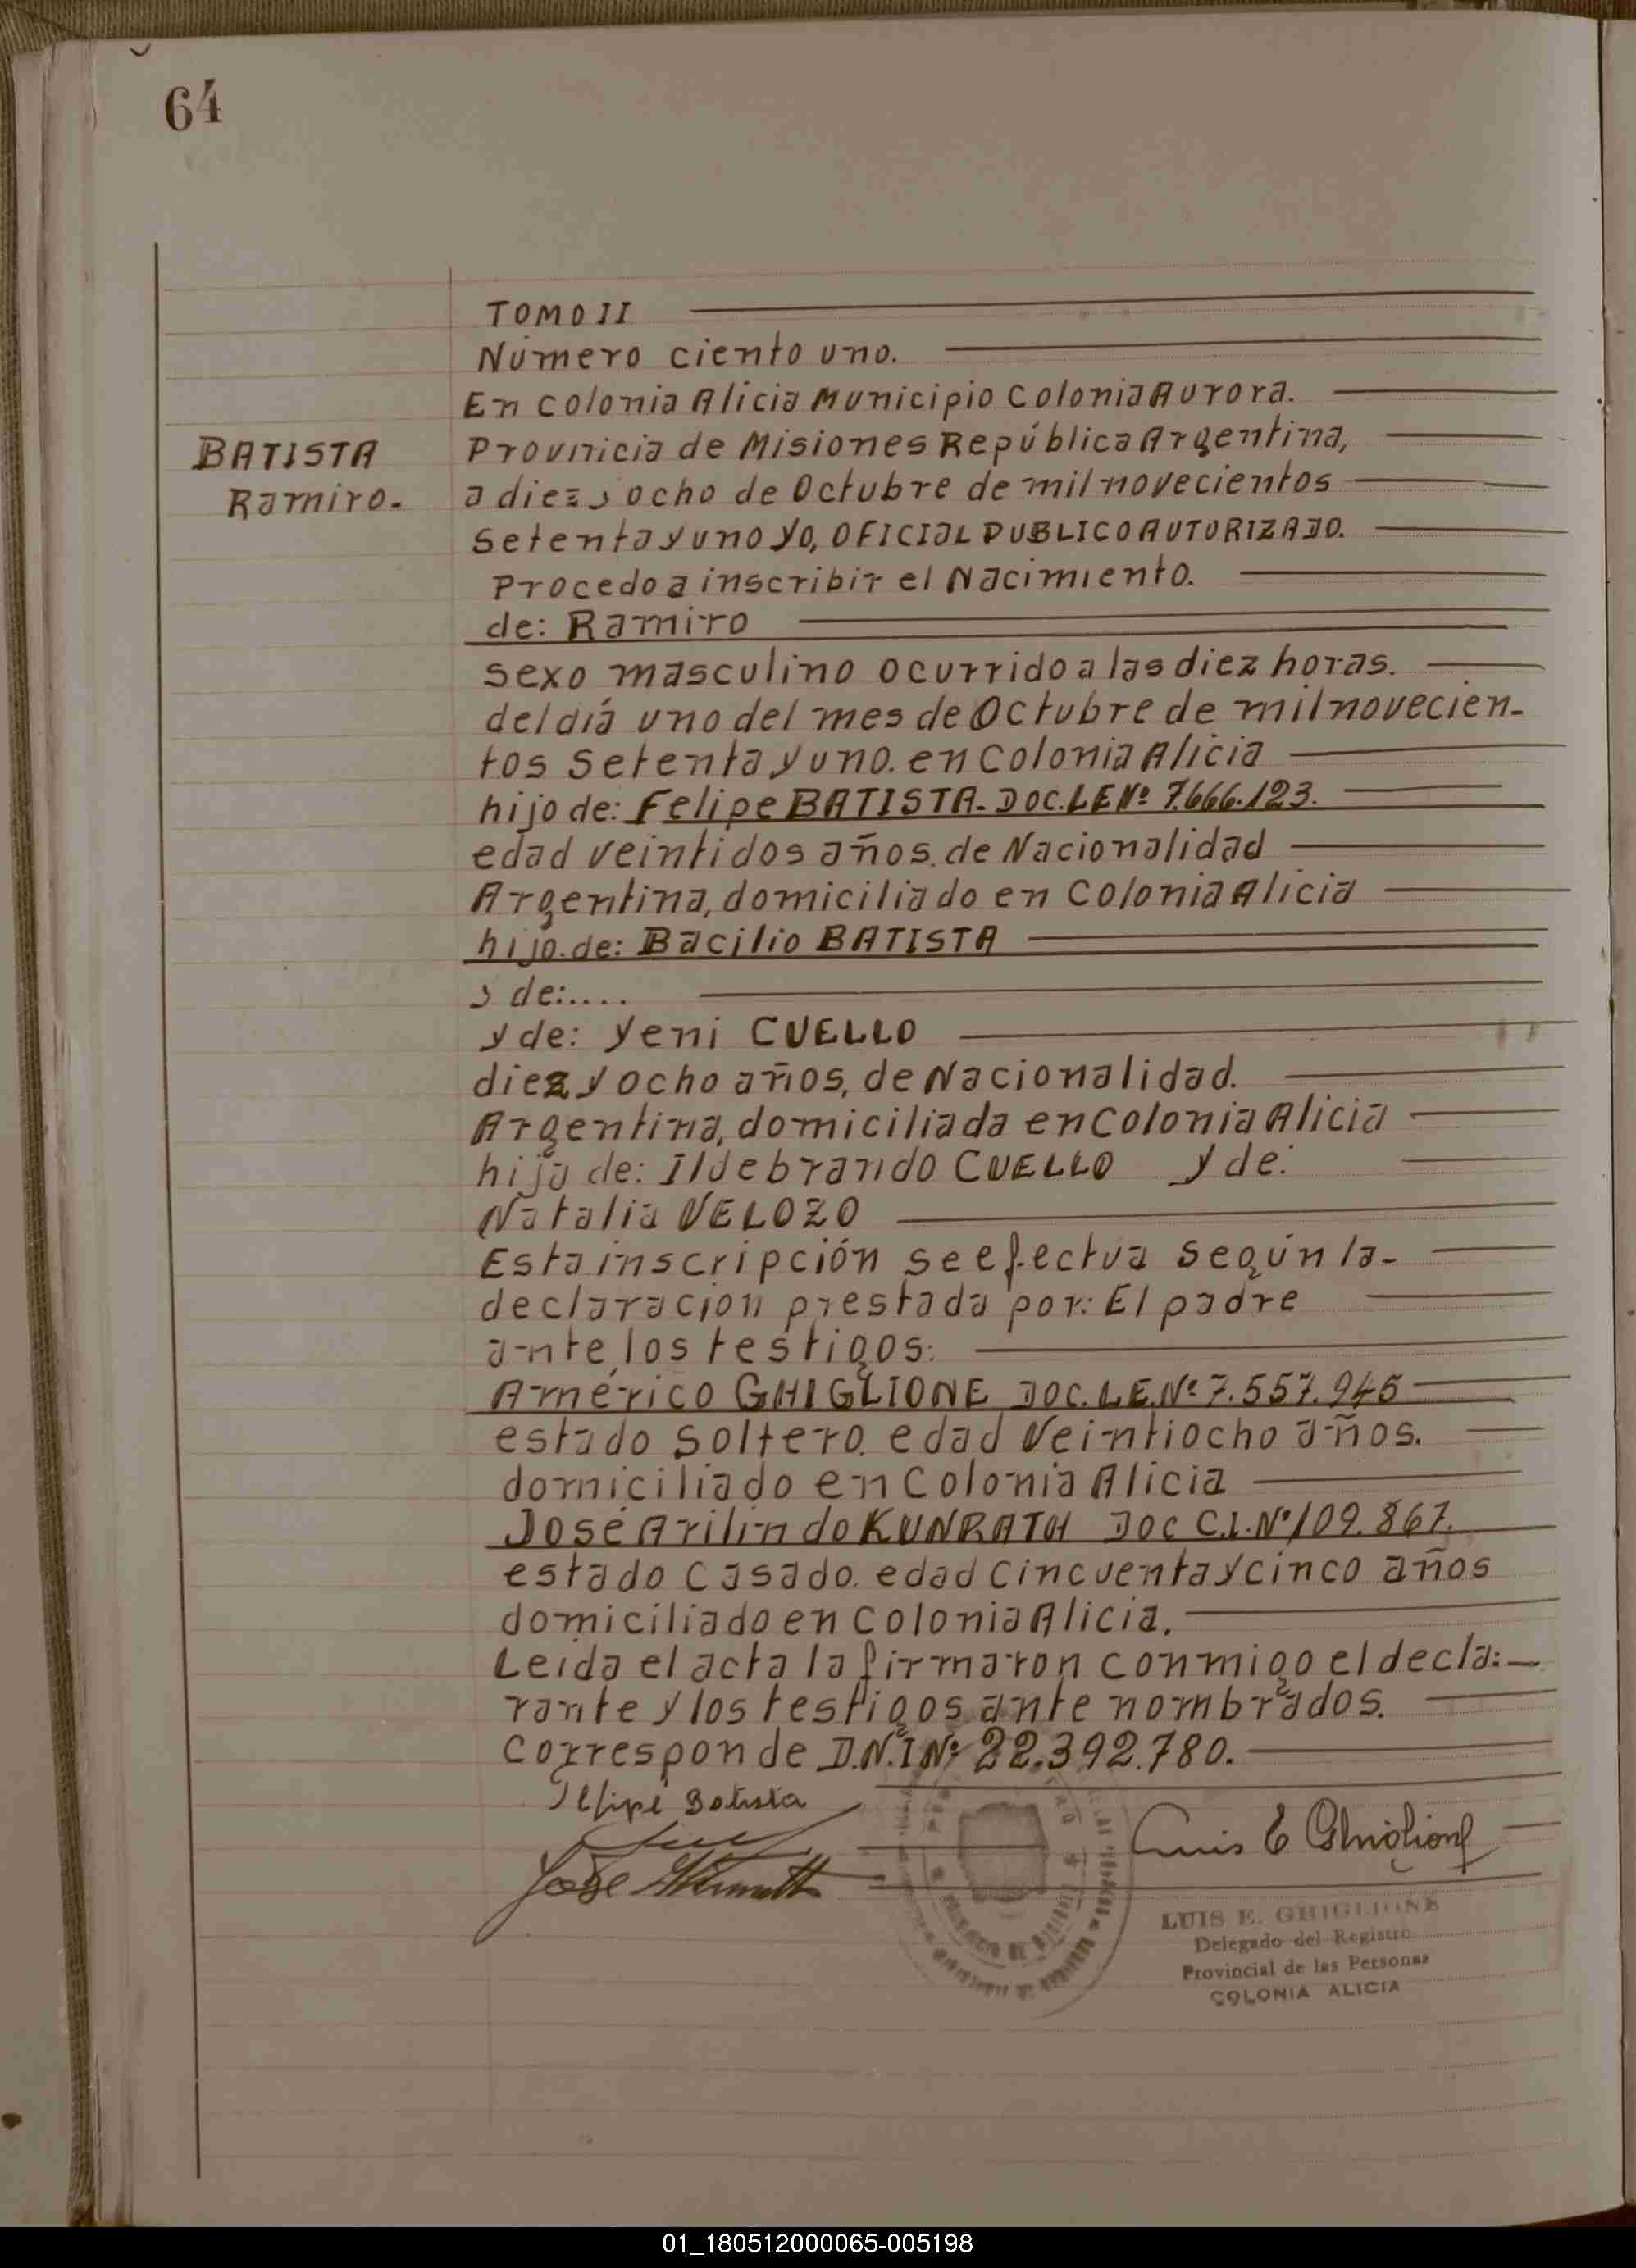 64
TOMO II
Número ciento uno.
En colonia Alicia Municipio Colonia Aurora.
BATISTA
Ramiro.
Provincia de Misiones República Argentina,
a diez y ocho de Octubre de mil novecientos
setenta y uno yo, OFICIAL PUBLICO AUTORIZADO.
Procedo a inscribir el Nacimiento.
de: Ramiro
sexo masculino ocurrido a las diez horas.
del día uno del mes de Octubre de mil novecien-
tos setenta y uno. en Colonia Alicia
hijo de: Felipe BATISTA. DOC. LE Nº 7.666.123.
edad veintidos años. de Nacionalidad
Argentina, domiciliado en Colonia Alicia
hijo. de: Bacilio BATISTA
y de:....
y de: Yeni CUELLO
diez y ocho años, de Nacionalidad.
Argentina, domiciliada en Colonia Alicia
hija de: Ildebrando CUELLO y de:
Natalia VELOZO
Esta inscripción se efectua según la-
declaración prestada por: El padre
ante los testigos:
Américo GHIGLIONE DOC. L.E. Nº 7.557.945
estado soltero. edad Veintiocho años.
domiciliado en Colonia Alicia
José Arilindo KUNRATH DOC C.I. Nº 109.867.
estado casado. edad cincuenta y cinco años
domiciliado en Colonia Alicia.
Leída el acta la firmaron conmigo el decla:-
rante y los testigos ante nombrados.
Corresponde D.N.I Nº 22.392.780.
Felipe Batista
Luis E Ghiglione
José
LUIS E. GHIGLIONE
Delegado del Registro
Provincial de las Personas
COLONIA ALICIA
01_180512000065-005198